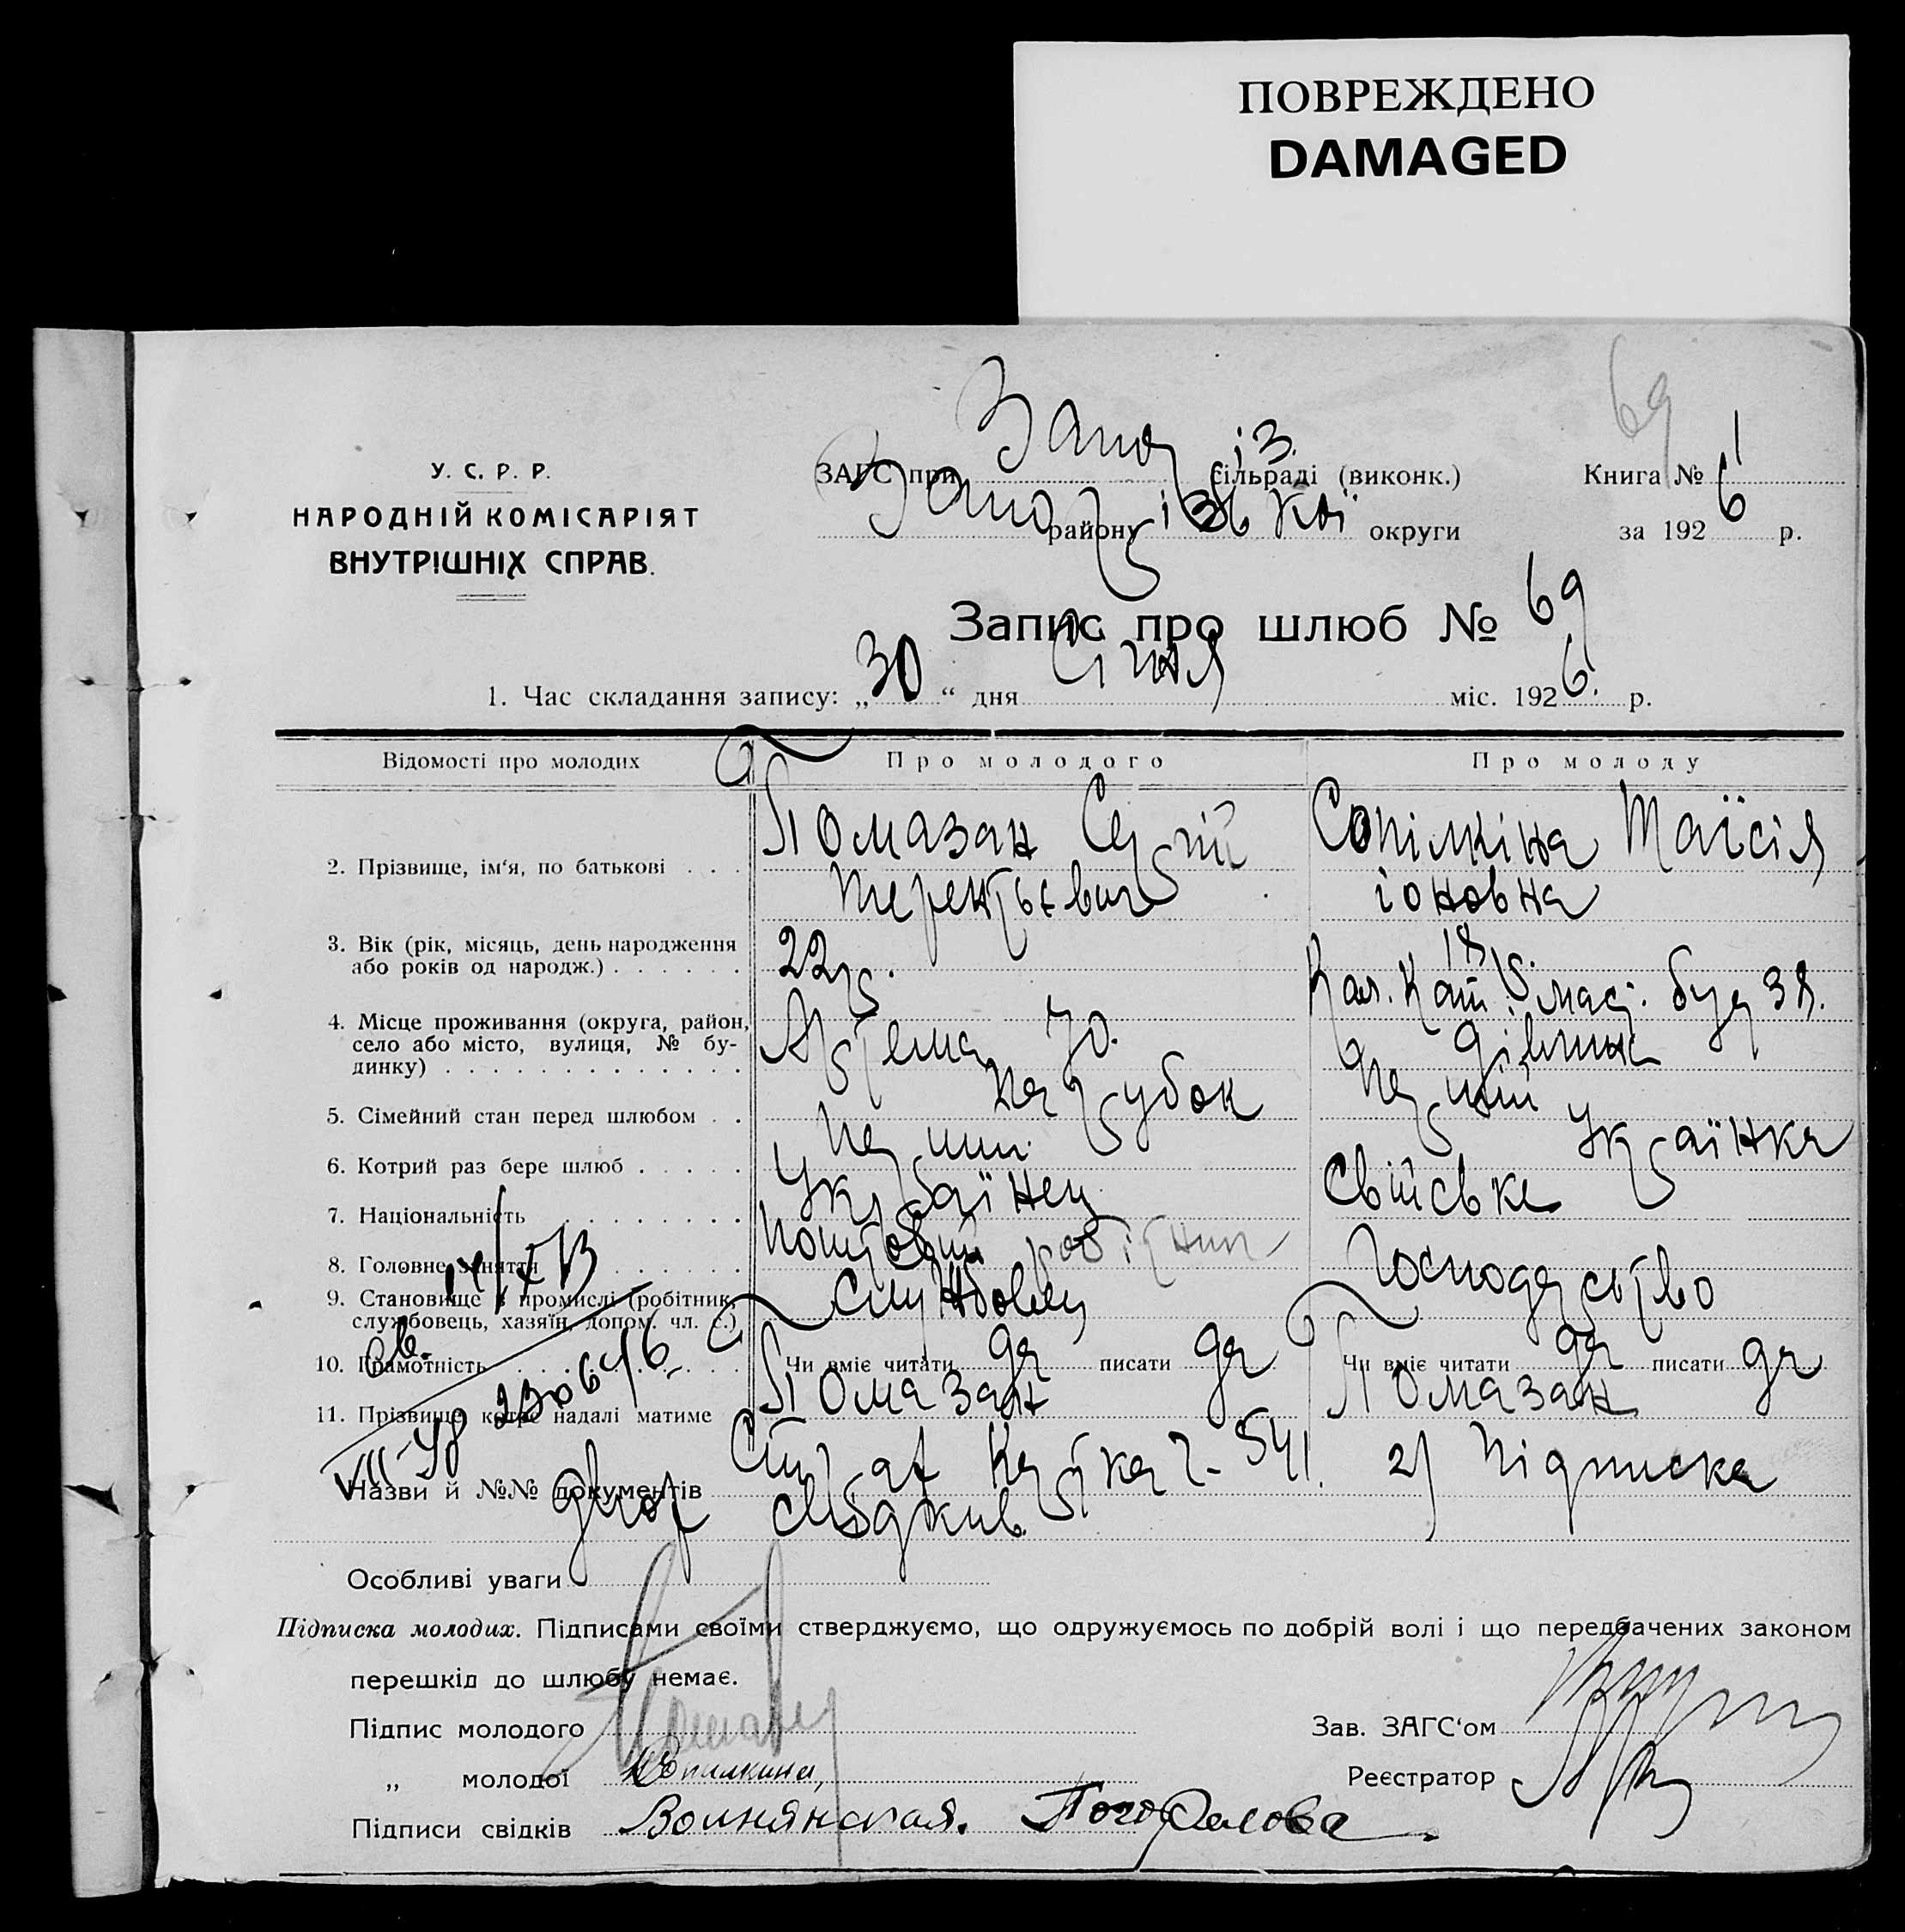 ПОВРЕЖДЕНО
DAMAGED
69
У. С. Р. Р.
НАРОДНІЙ КОМІСАРІЯТ
ВНУТРІШНІХ СПРАВ.
ЗАГС при Запор із. сільраді (виконк.) Книга № 1
Запорізької району округи за 1926 р.
Запис про шлюб № 69
1. Час складання запису: „30“ дня Січня міс. 1926 р.
Відомості про молодих Про молодого Про молоду
2. Прізвище, ім‘я, по батькові . . . Помазан Сергій Терентьєвич Сопілкіна Таїсія іоновна
3. Вік (рік, місяць, день народження
або років од народж.) . . . . . . 22 р. 18 р.
4. Місце проживання (округа, район,
село або місто, вулиця, № бу-
динку) . . . . . . . . . . . . . Артема 70. Кат. буд 38.
5. Сімейний стан перед шлюбом . . парубок дівчина
6. Котрий раз бере шлюб . . . . . перший перший
7. Національність . . . . . . . українец українка
8. Головне заняття . . . . . . поштовий робітник свійське
9. Становище в промислі (робітник,
службовець, хазяїн, допом. чл. с.) службовец господарство
10. Грамотність . . . . . . . . Чи вміє читати да писати да Чи вміє читати да писати да
11. Прізвище, котре надалі матиме Помазан Помазан
Назви й №№ документів картка ч- 541. 2) Підписка
свідків
Особливі уваги
Підписка молодих. Підписами своїми стверджуємо, що одружуємось по добрій волі і що передбачених законом
перешкід до шлюбу немає.
Підпис молодого Помазан Зав. ЗАГС‘ом
„ молодої Сопилкина, Реєстратор
Підписи свідків Волнянская.